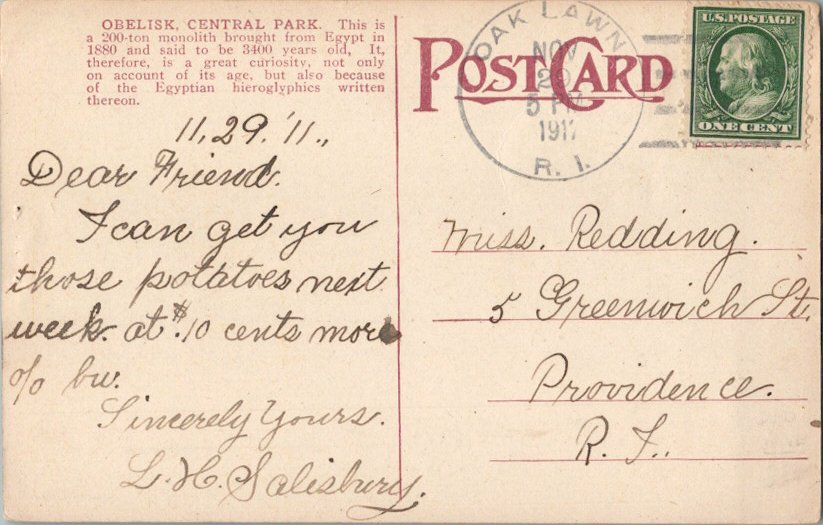 OBELISK, CENTRAL PARK. This is
a 200-ton monolith brought from Egypt in
1880 and said to be 3400 years old, It,
therefore, is a great curiosity, not only
on account of its age, but also because
of the Egyptian hieroglyphics written
thereon.
11, 29. '11.,
Dear Friend.
I can get you
those potatoes next
week. at $.10 cents more
% bu.
Sincerely Yours.
L. H. Salisbury.
POST CARD
OAK LAWN
NOV
29
5 PM
1911
R. I.
U.S. POSTAGE
ONE CENT
Miss. Redding.
5 Greenwich St.
Providence.
R. I..